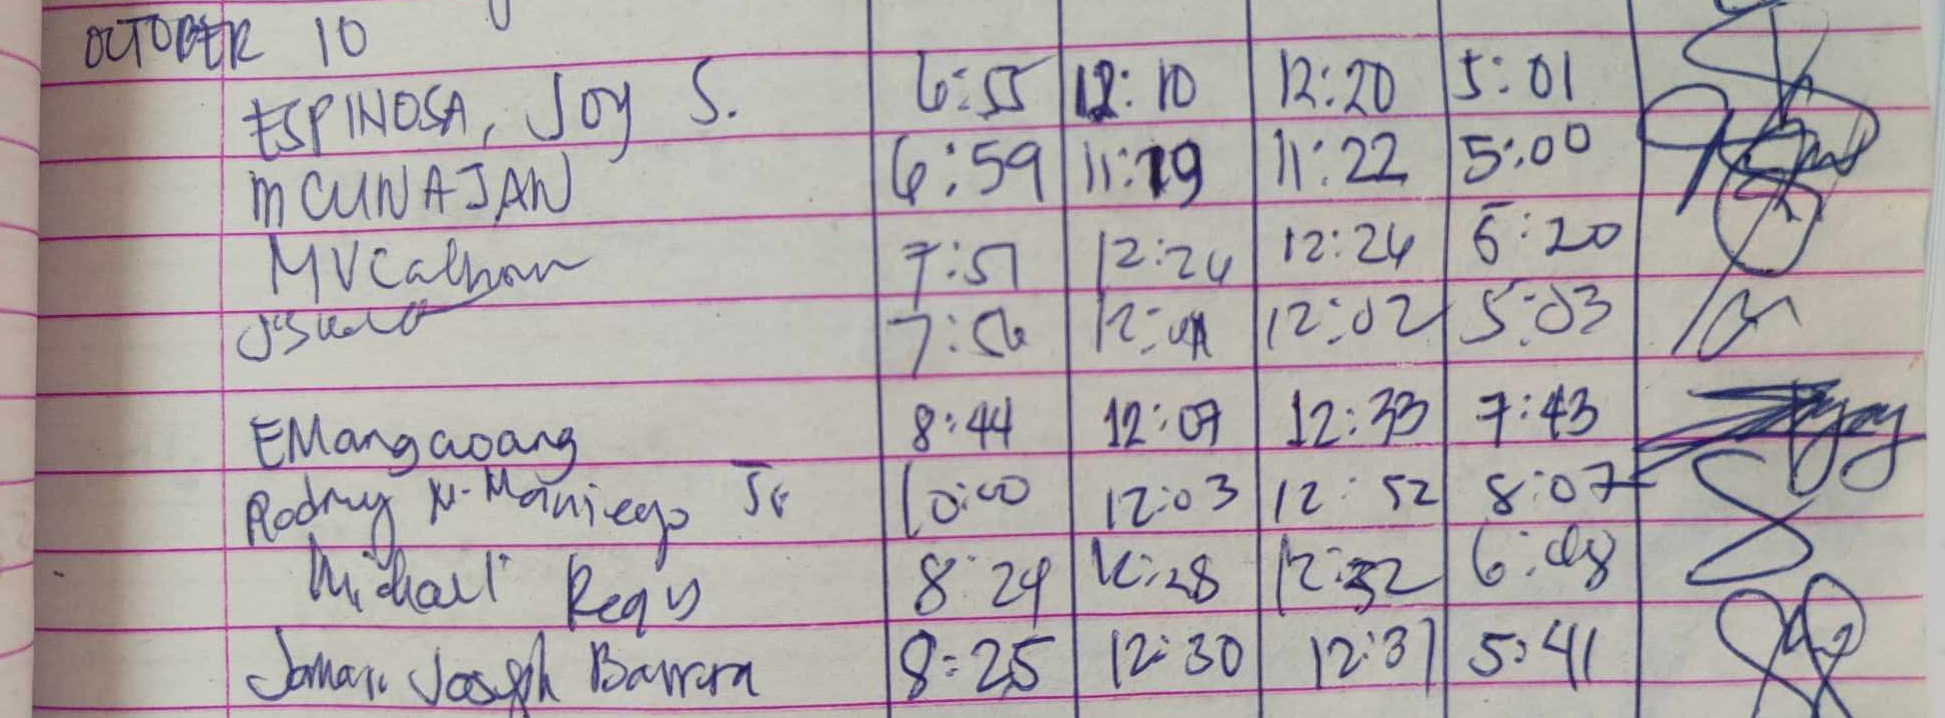 OCTOBER 10
ESPINOSA, Joy S. 6:55 12:10 12:20 5:01
MCUNAJAN 6:59 11:19 11:22 5:00
MVCalhoun 7:51 12:24 12:24 5:20
7:56 12:02 5:03
EMangaoang 8:44 12:07 12:33 7:43
Rodney M. Maniego Jr 10:00 12:03 12:52 8:07
Michael Regis 8:29 12:28 12:32 6:08
Joseph Barrera 8:25 12:30 12:31 5:41